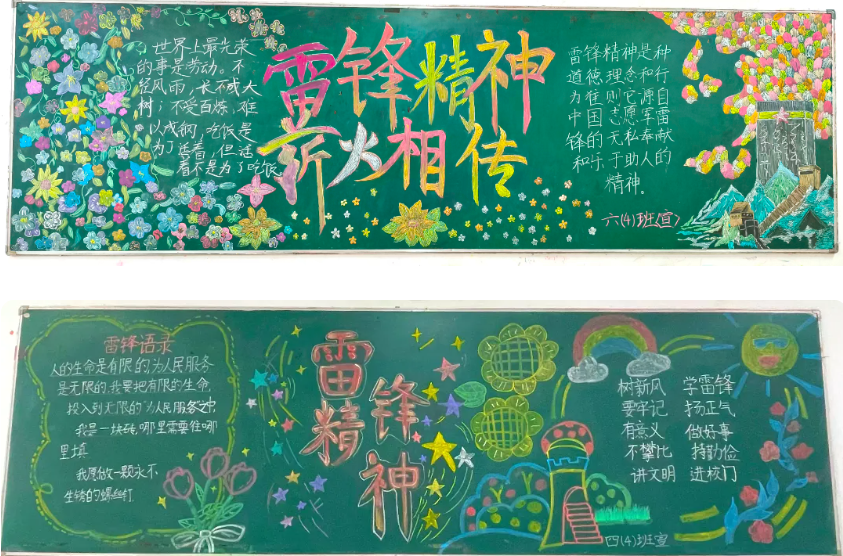 世界上最光荣
的事是劳动。不
经风雨,长不成大
树;不受百炼,难
以成钢,吃饭是
为了活着,但活
着不是为了吃饭
雷锋精神
薪火相传
雷锋精神是种
道德理念和行
为准则它源自
中国志愿军雷
锋的无私奉献
和乐于助人的
精神。
六(4)班(宣)
雷锋语录
人的生命是有限的为人民服务
是无限的,我要把有限的生命,
投入到无限的"为人民服务"之中
我是一块砖,哪里需要往哪
里填
我愿做一颗永不
生锈的螺丝钉
雷锋
精神
树新风 学雷锋
要牢记 扬正气
有意义 做好事
不攀比 持勤俭
讲文明 进校门
四(4)班宣